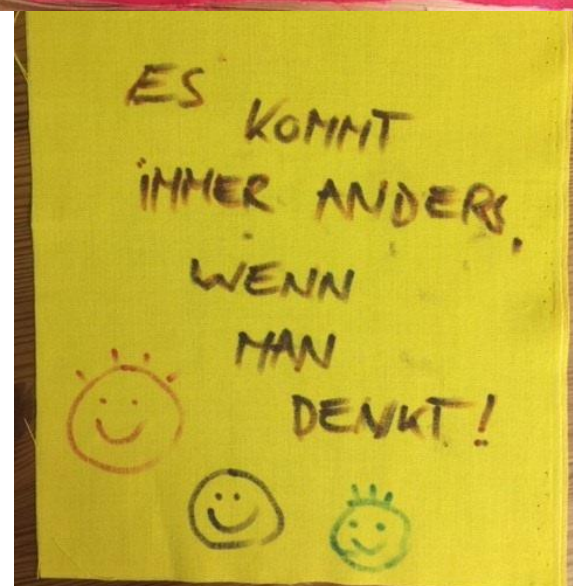 ES
KOMMT
iMMER ANDERS,
WENN
MAN
DENKT!